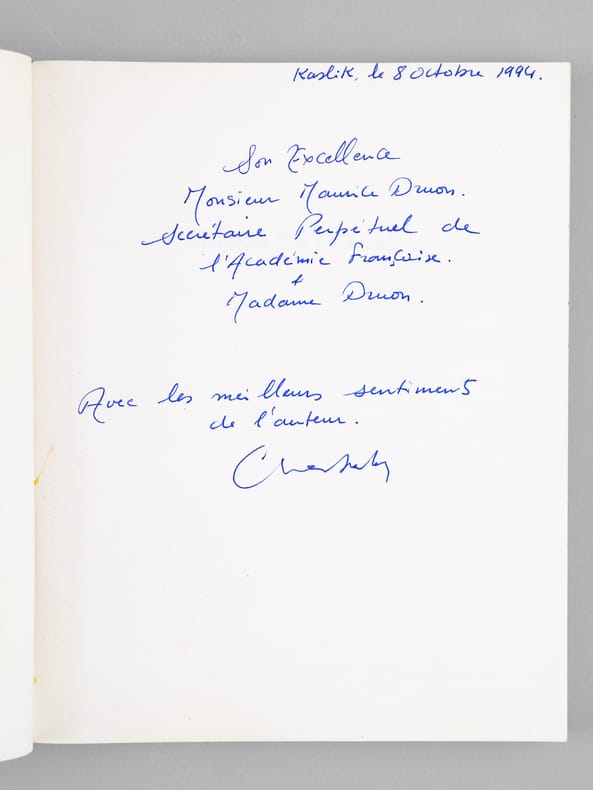 Kaslik, le 8 Octobre 1994.
Son Excellence
Monsieur Maurice Druon.
Secrétaire Perpétuel de
l'Académie Française.
+
Madame Druon.
Avec les meilleurs sentiments
de l'auteur.